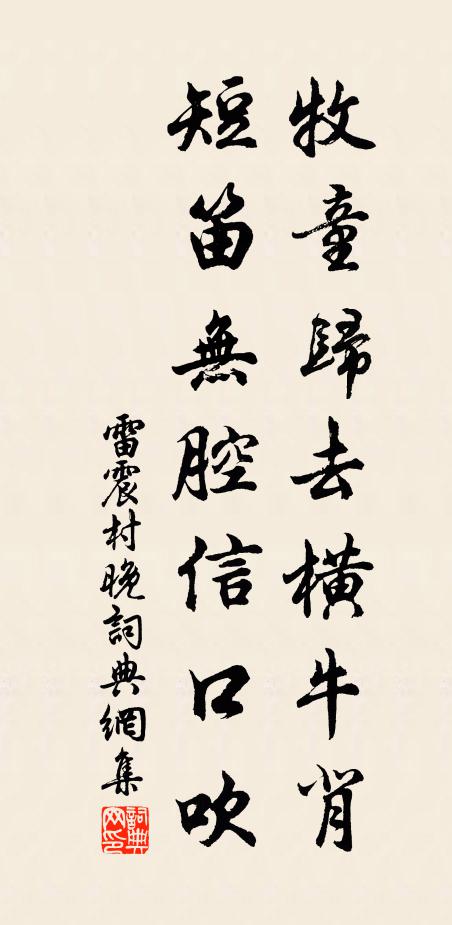 牧童歸去橫牛背
短笛無腔信口吹
雷震村晚詞典網集
詞典网印